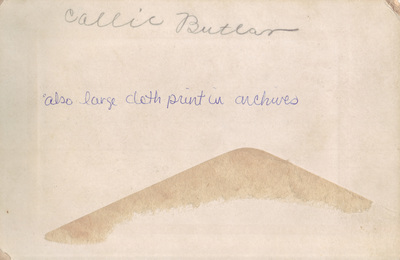 Callie Butler
*also large cloth print in archives